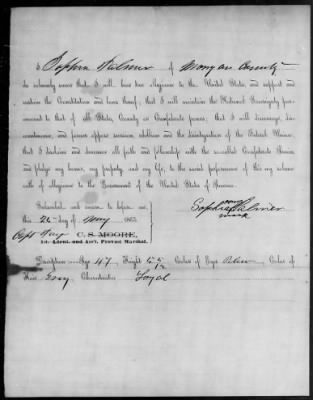 I, Sophia Palmer of Morgan County
do solemnly swear that I will bear true allegiance to the United States, and support and
sustain the Constitution and laws thereof, that I will maintain the National Sovereignty para-
mount to that of all State, County or Confederate powers; that I will discourage, dis-
countenance, and forever oppose secession, rebellion and the disintegration of the Federal Union;
that I disclaim and denounce all faith and fellowship with the so-called Confederate Armies,
and pledge my honor, my property, and my life, to the sacred performance of this my solemn
oath of allegiance to the Government of the United States of America.
Subscribed and sworn to before me,
this 26 day of May 1865
Sophia Palmer
my
mark
Capt C. S. MOORE,
1st. Lieut. and Ass't. Provost Marshal.
Description—Age 47, Height 5 ft, Color of Eyes Blue, Color of
Hair Gray, Characteristics Loyal